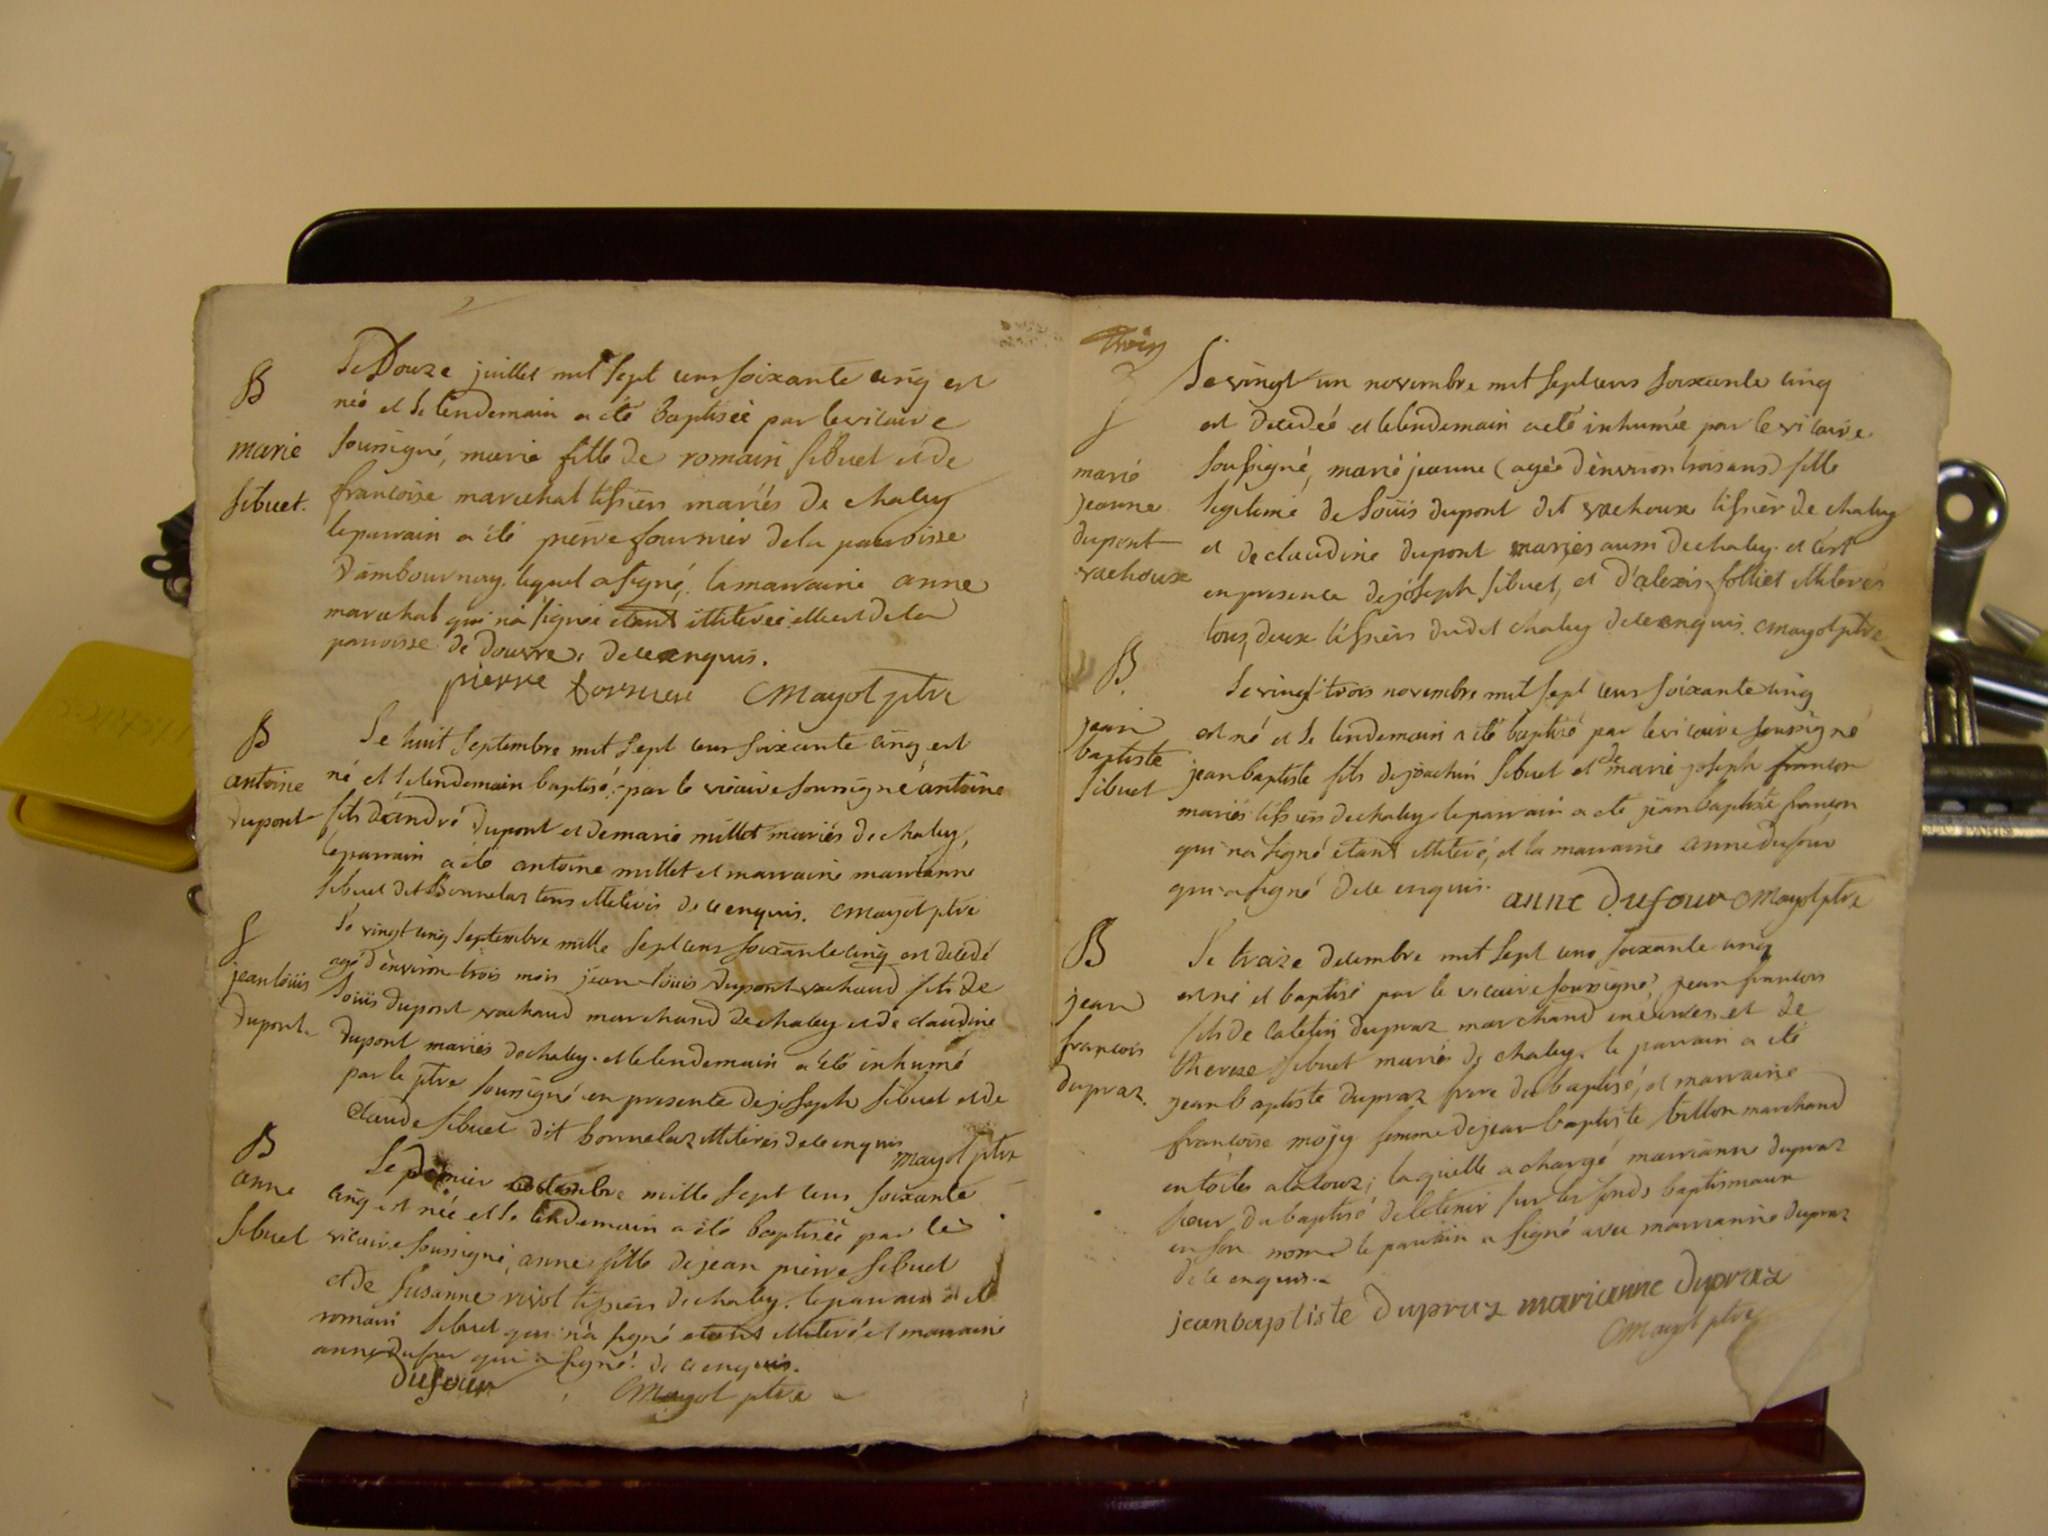 B
marie
sibuet.
Le Douze juillet mil sept cens soixante cinq est
née et le lendemain a été baptisée par le vicaire
soussigné, marie fille de romain sibuet et de
francoise marechal tissiers mariés de chaley
le parrain a été pierre fournier de la parroisse
d'ambournay lequel a signé, la marraine anne
marechal qui n'a signée étant illiterée elle est de la
parroisse de douvre, de ce enquis.
pierre Mayol ptre
B
antoine
dupont
Le huit septembre mil sept cens soixante cinq est
né et le lendemain baptisé par le vicaire soussigné antoine
fils d'andré dupont et de marie millet mariés de chaley,
le parrain a été antoine millet et marraine marianne
sibuet dit Bonnelaz tous illiterés de ce enquis. Mayol ptre
S
jean loüis
dupont
Le vingt cinq septembre mille sept cens soixante cinq est decedé
agé d'environ trois mois jean loüis dupont vachoud fils de
loüis dupont vachoud marchand de chaley et de claudine
dupont mariés de chaley. et le lendemain a été inhumé
par le ptre soussigné en presence de joseph sibuet et de
claude sibuet dit bonnelaz illiterés de ce enquis
Mayol ptre
B
anne
sibuet
Le mille sept cens soixante
cinq est née et le lendemain a été baptisée par le
vicaire soussigné, anne fille de jean pierre sibuet
et de susanne tissiers de chaley. le parrain a été
romain sibuet qui n'a signé étant illiteré et marraine
anne dufour qui a signé. de ce enquis.
dufour Mayol ptre
trois
S
marie
jeanne
dupont
vachoux
Le vingt un novembre mil sept cens soixante cinq
est decedée et le lendemain a été inhumée par le vicaire
soussigné, marie jeanne (agée d'environ trois ans) fille
legitime de loüis dupont dit vachoux tissier de chaley
et de claudine dupont mariés aussi de chaley. et c'est
en presence de joseph sibuet, et d'alexis folliet illiterés
tous deux tissiers dudit chaley de ce enquis. Mayol ptre
B
jean
baptiste
sibuet
Le vingt trois novembre mil sept cens soixante cinq
est né et le lendemain a été baptisé par le vicaire soussigné
jean baptiste fils de joachin sibuet et de marie joseph françon
mariés tissiers de chaley le parrain a été jean baptiste françon
qui n'a signé étant illiteré, et la marraine anne dufour
qui a signé de ce enquis. anne Dufour Mayol ptre
B
jean
francois
dupraz.
Le traize decembre mil sept cens soixante cinq
est né et baptisé par le vicaire soussigné, jean francois
fils de dupraz marchand et de
therese sibuet mariés de chaley. le parrain a été
jean baptiste dupraz frere du baptisé, et marraine
francoise femme de jean baptiste billon marchand
en toiles a la laquelle a chargé marianne dupraz
soeur du baptisé de le tenir sur les fonds baptismaux
en son nom le parrain a signé avec marianne dupraz
de ce enquis.
jean baptiste Dupraz marianne dupraz
Mayol ptre